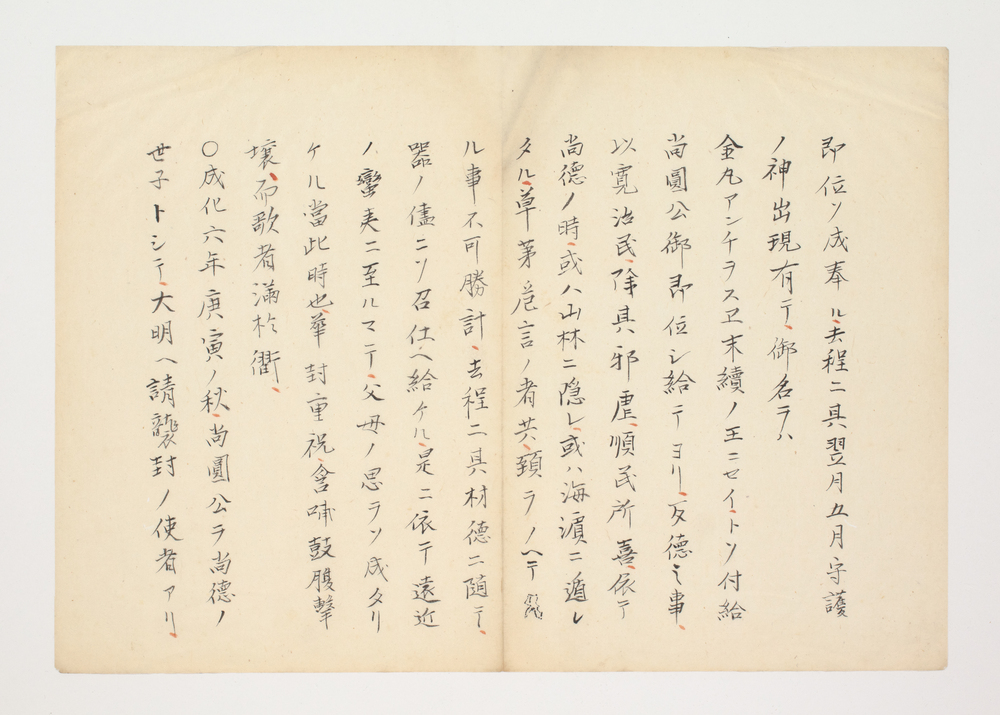 即位ソ成奉ル、去程ニ其翌月五月守護
ノ神出現有テ、御名ヲハ
金丸アンチラスヱ末續ノ王ニセイ、トソ付給
尚圓公御即位シ給テヨリ、反德之事、
以寛治民、除其邪虐、順民所喜、依テ
尚德ノ時、或ハ山林ニ隠レ、或ハ海濵ニ遁レ
タル、草茅危言ノ者共、頚ヲノヘテ
ル事不可勝計、去程ニ其材德ニ随テ、
器ノ儘ニソ召仕ヘ給ケル、是ニ依テ遠近
ノ蠻夷ニ至ルマテ、父母ノ思ヲソ成タリ
ケル當此時也、華封重祝、含哺鼓腹撃
壌、而歌者滿於衢、
〇成化六年庚寅ノ秋、尚圓公ヲ尚德ノ
世子トシテ、大明ヘ請襲封ノ使者アリ、